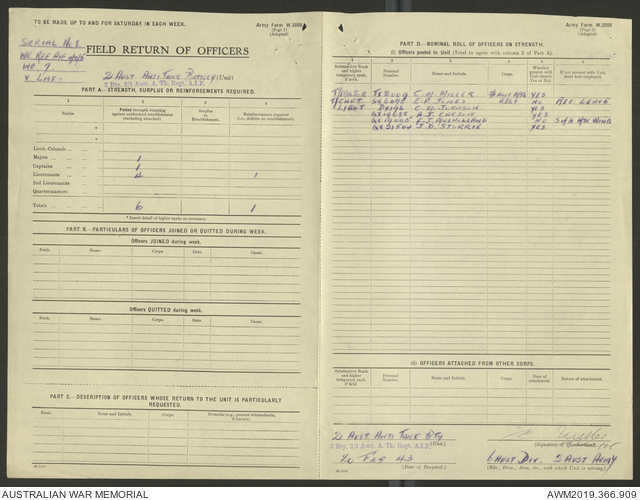 TO BE MADE UP TO AND FOR SATURDAY IN EACH WEEK.
Army Form W.3008
(Page 2)
(Adapted)
SERIAL No 8.
FIELD RETURN OF OFFICERS
2 Aust Anti Tank Battery (Unit)
2 Div. 2/1 Aust. A. Tk. Regt. A.I.F.
PART A.—STRENGTH, SURPLUS OR REINFORCEMENTS REQUIRED.
1 2 3 4
Ranks.
Posted strength counting against authorized establishment (excluding attached).
Surplus to Establishment.
Reinforcements required (i.e., deficits on establishment).
Lieut.-Colonels
Majors 1
Captains 1
Lieutenants 4 1
2nd Lieutenants
Quartermasters
Totals 6 1
* Insert detail of higher ranks as necessary.
PART B.—PARTICULARS OF OFFICERS JOINED OR QUITTED DURING WEEK.
Officers JOINED during week.
Rank. Name. Corps. Date. Rank. Name. Corps. Date.
Officers QUITTED during week.
Rank. Name. Corps. Date. Rank. Name. Corps. Date.
PART C.—DESCRIPTION OF OFFICERS WHOSE RETURN TO THE UNIT IS PARTICULARLY REQUESTED.
Rank. Name and Initials. Corps. Remarks (e.g., present whereabouts, if known).
Army Form W.3008
(Page 3)
(Adapted)
PART D.—NOMINAL ROLL OF OFFICERS ON STRENGTH.
(i) Officers posted to Unit (Total to agree with column 2 of Part A).
1 2 3 4 5 6
Substantive Rank and higher temporary rank, if held.
Personal Number.
Name and Initials.
Corps.
Whether present with Unit (insert Yes or No).
If not present with Unit show how employed.
T/Major C. H. MILLER YES
T/Capt E. P. JONES REGT NO REC LEAVE
LIEUT C. W. JOHNSON YES
YES
NO
J. D. STORRIE YES
(ii) OFFICERS ATTACHED FROM OTHER CORPS.
Substantive Rank and higher temporary rank, if held.
Personal Number.
Name and Initials.
Corps.
Date of Attachment.
Nature of attachment.
2 Aust Anti Tank Bty (Unit)
2 Div. 2/1 Aust. A. Tk. Regt. A.I.F.
(Signature of Commander)
20 Feb 43
(Date of Despatch)
Aust Div. Aust Army
(Bde., Divn., Area, etc., with which Unit is serving)
AUSTRALIAN WAR MEMORIAL
AWM2019.366.909